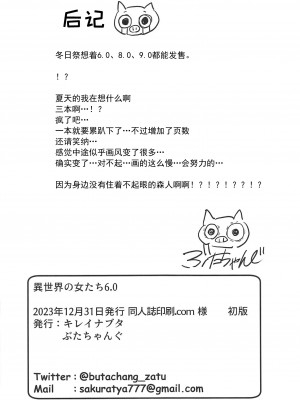 后记
冬日祭想着6.0、8.0、9.0都能发售。
！？
夏天的我在想什么啊
三本啊…！？
疯了吧…
一本就要累趴下了…不过增加了页数
还请笑纳…
感觉中途似乎画风变了很多…
确实变了…对不起…画的这么慢…会努力的…
因为身边没有住着不起眼的森人啊啊！？！？！？！？！？
ぶたちゃんぐ
異世界の女たち6.0
2023年12月31日発行 同人誌印刷.com 様 初版
発行：キレイナブタ
ぶたちゃんぐ
Twitter：@butachang_zatu
Mail ：sakuratya777@gmail.com